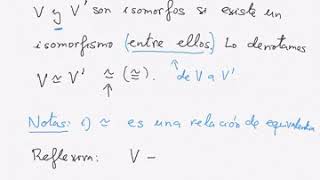 V y V' son isomorfos si existe un
isomorfismo (entre ellos). Lo denotamos
V ≃ V' ≃ (≅). de V a V'
Notas: 1) ≃ es una relación de equivalencia
Reflexiva: V –